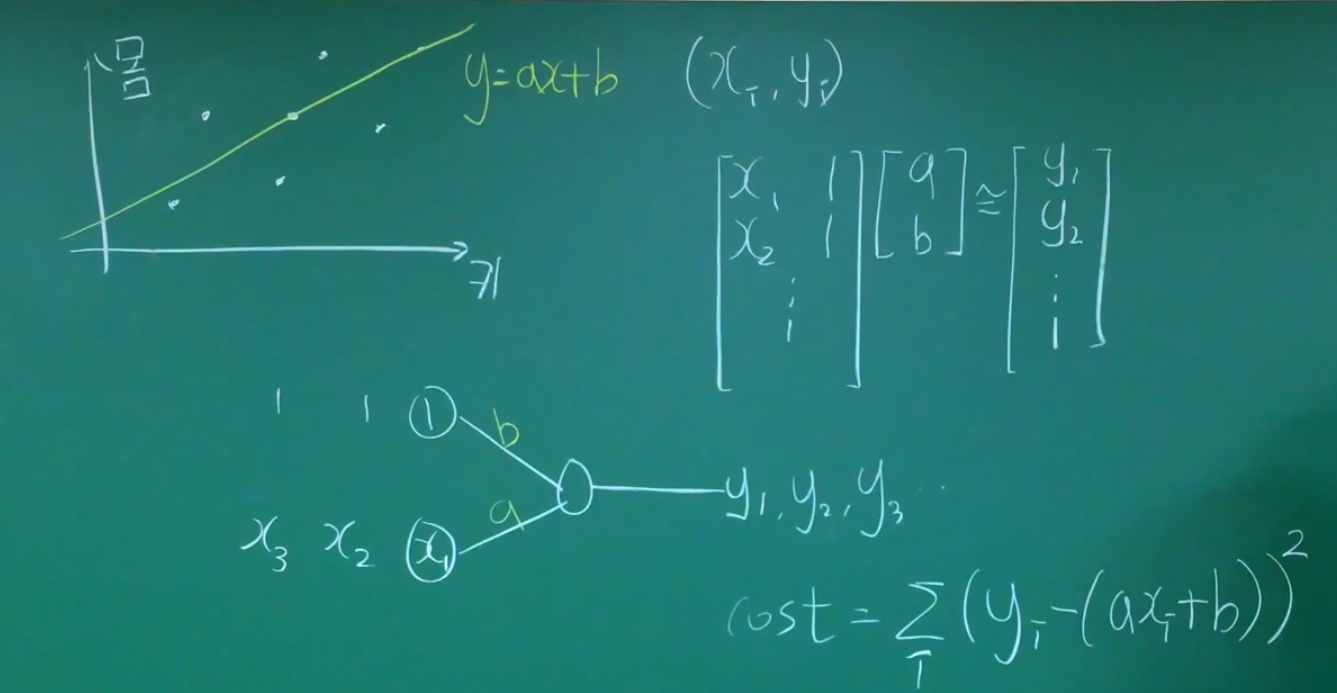 몸
y=ax+b
(x_i, y_i)
키
[x₁ 1] [a] ≅ [y₁]
[x₂ 1] [b] [y₂]
⋮ ⋮
1 1 ① b
a
x₃ x₂ x₁
y₁, y₂, y₃ ...
cost = Σ_i (y_i-(ax_i+b))²